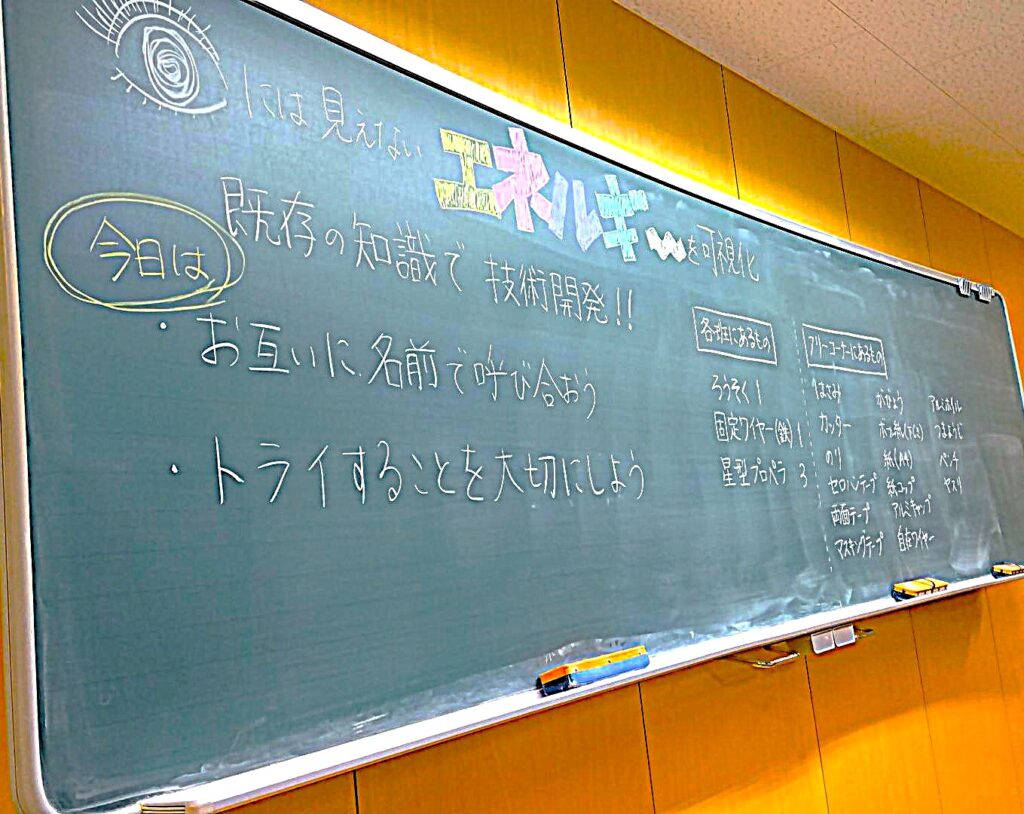 には見えないエネルギーを可視化
今日は
既存の知識で技術開発!!
・お互いに名前で呼び合おう
・トライすることを大切にしよう
各班にあるもの
ろうそく 1
固定ワイヤー(鉄) 1
星型プロペラ 3
フリーコーナーにあるもの
はさみ
カッター
のり
セロハンテープ
両面テープ
マスキングテープ
がびょう
紙(A4)
紙コップ
アルミキャップ
自在ワイヤー
アルミホイル
つまようじ
ペンチ
ヤスリ